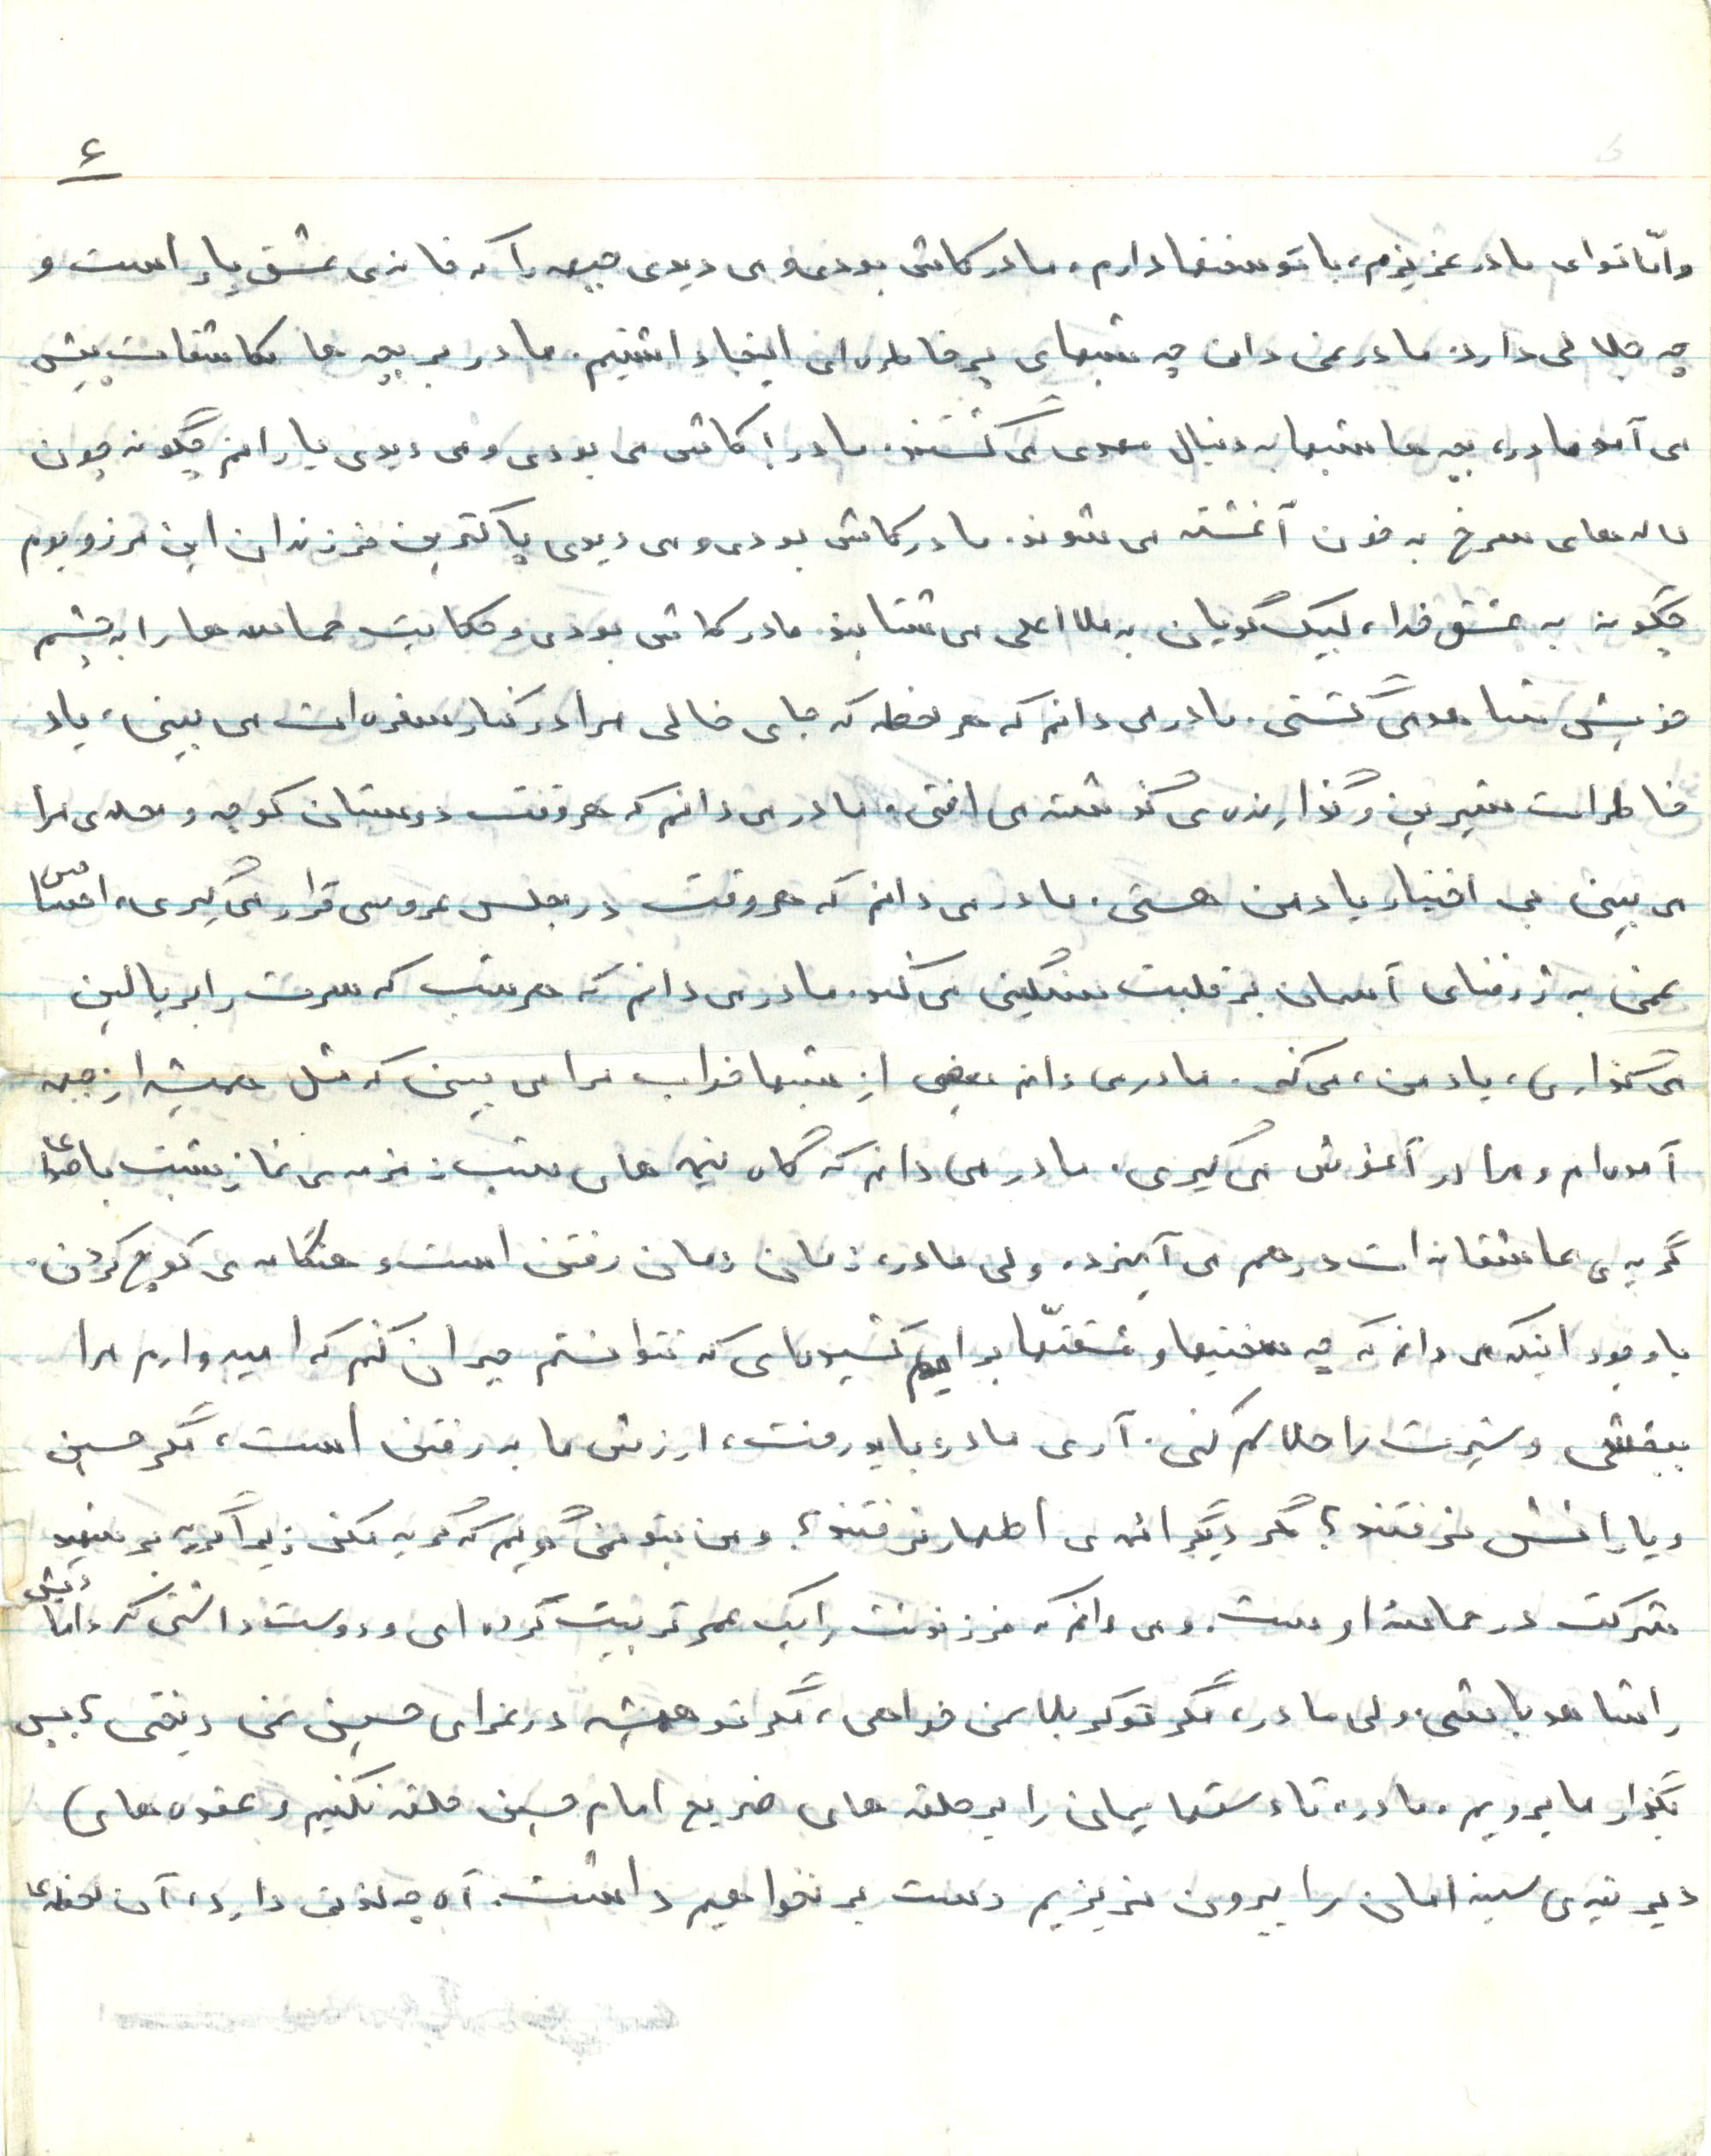 ۶
و امّا تو ای مادر عزیزم، با تو سخنها دارم. مادر کاش بودی و می دیدی جبهه را که خانه ی عشق یار است و
چه جلالی دارد. مادر نمی دانی چه شبهای پر خاطره ای اینجا داشتیم. مادر بر بچه ها مکاشفات پیش
می آمد مادر، بچه ها شبها به دنبال مهدی می گشتند. مادر! کاش می بودی و می دیدی یارانم چگونه چون
لاله های سرخ به خون آغشته می شوند. مادر کاش بودی و می دیدی پاکترین فرزندان این مرز و بوم
چگونه به عشق خدا، لبیک گویان به ملا اعلی می شتابند. مادر کاش بودی و حکایت حماسه ها را به چشم
خویش شاهد می گشتی. مادر می دانم که هر لحظه که جای خالی مرا در کنار سفره ات می بینی، یاد
خاطرات شیرین و گذارنده ی گذشته می افتی. مادر می دانم که هر وقت دوستان کوچه و محله ی مرا
می بینی بی اختیار یاد من هستی. مادر می دانم که هر وقت در مجلس عروسی قرار می گیری، احساس
غمی به ژرفنای آسمان بر قلبت سنگینی می کند. مادر می دانم که هر شب که سرت را بر بالین
می گذاری، یاد من، می کنی. مادر می دانم بعضی از شبها خواب مرا می بینی که مثل همیشه از جبهه
آمده ام و مرا در آغوش می گیری. مادر می دانم که گاه نیمه های شب زمزمه ی نماز شبت با صدای
گریه ی عاشقانه ات در هم می آمیزد. ولی مادر، زمان زمان رفتن است و هنگامه ی کوچ کردن.
با وجود اینکه می دانم که چه سختیها و مشقتّها برایم کشیده ای که نتوانستم جبران کنم که امیدوارم مرا
ببخشی و شیرت را حلالم کنی. آری مادر، باید رفت، ارزش ما به رفتن است، مگر حسین
و یارانش نرفتند؟ مگر دیگر ائمه ی اطهار نرفتند؟ و من بتو نمی گویم که گریه مکن زیرا گریه بر شهید
شرکت در حماسه اوست. و می دانم که فرزندت را یک عمر تربیت کرده ای و دوست داشتی که دامادیش
را شاهد باشی. ولی مادر، مگر تو کربلا نمی خواهی، مگر تو همیشه در عزای حسین نمی رفتی؟ پس
بگذار ما برویم. مادر، تا دستهایمان را بر حلقه های ضریح امام حسین حلقه نکنیم و عقده های
دیرینه ی سینه امان را بیرون نریزیم دست بر نخواهیم داشت. آه چه لذتی دارد، آن لحظه